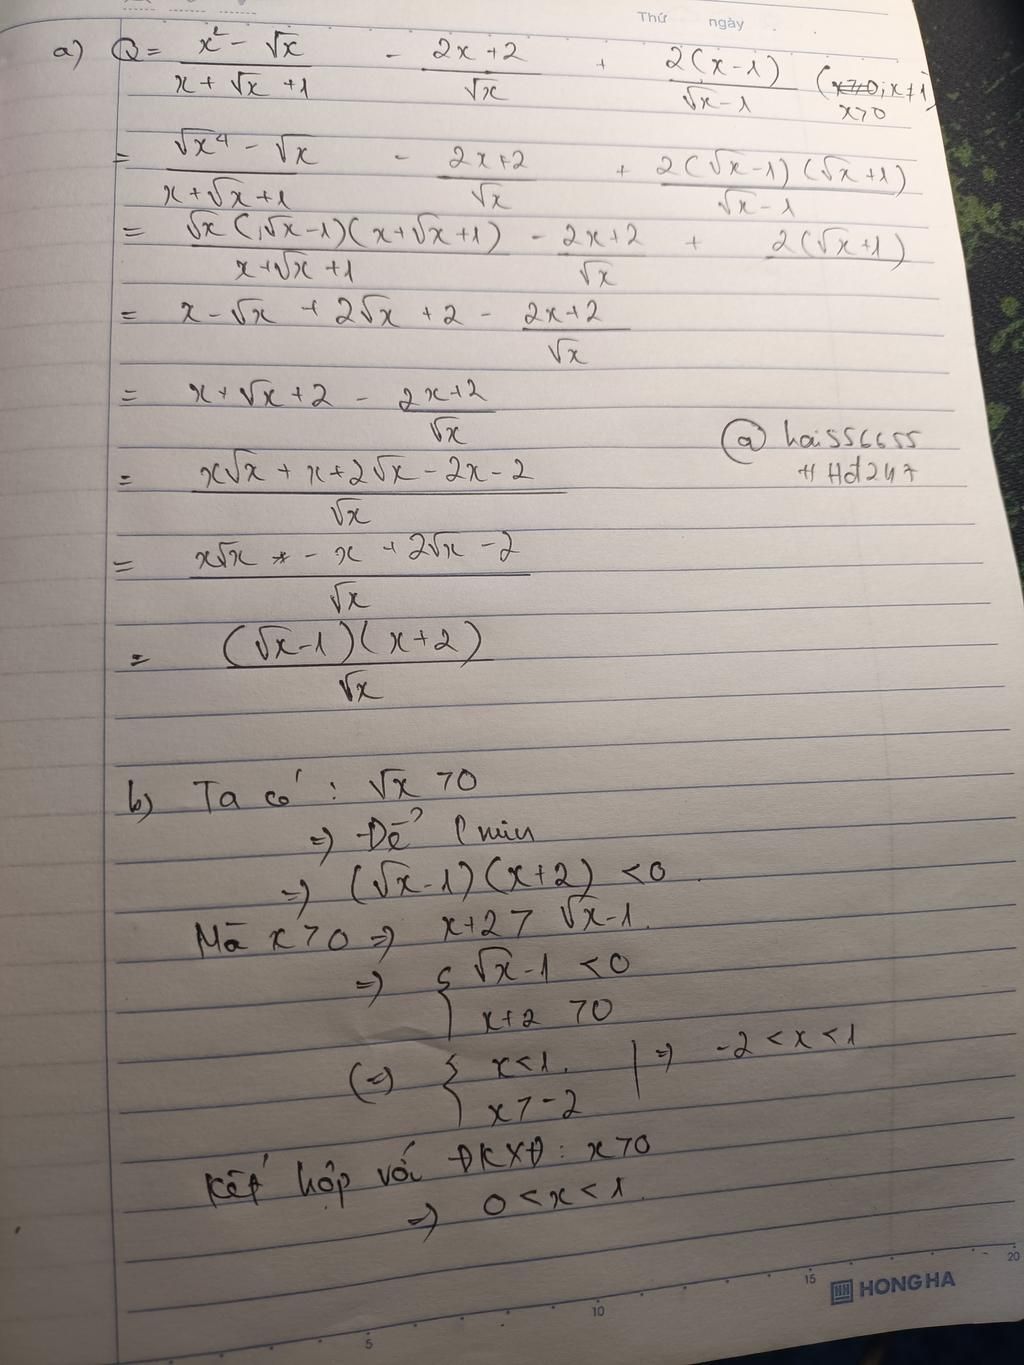 Thứ ngày
a) Q = \frac{x^2 - √x}{x + √x + 1} - \frac{2x+2}{√x} + \frac{2(x-1)}{√x - 1} (x≥0; x≠1)
x>0
= \frac{√x^4 - √x}{x+√x+1} - \frac{2x+2}{√x} + \frac{2(√x-1)(√x+1)}{√x-1}
= \frac{√x(√x-1)(x+√x+1)}{x+√x+1} - \frac{2x+2}{√x} + 2(√x+1)
= x - √x + 2√x + 2 - \frac{2x+2}{√x}
= x + √x + 2 - \frac{2x+2}{√x}
@ hai556655
# Hđ247
= \frac{x√x + x + 2√x - 2x - 2}{√x}
= \frac{x√x - x + 2√x - 2}{√x}
= \frac{(√x-1)(x+2)}{√x}
b) Ta có : √x >0
=> Để P min
=> (√x-1)(x+2) <0.
Mà x>0 => x+2> √x-1.
=> { √x-1 <0
x+2 >0
(=> { x<1. | => -2 <x <1
x>-2
Kết hợp với ĐKXĐ: x>0
=> 0 <x <1.
5 10 15 20
HONG HA